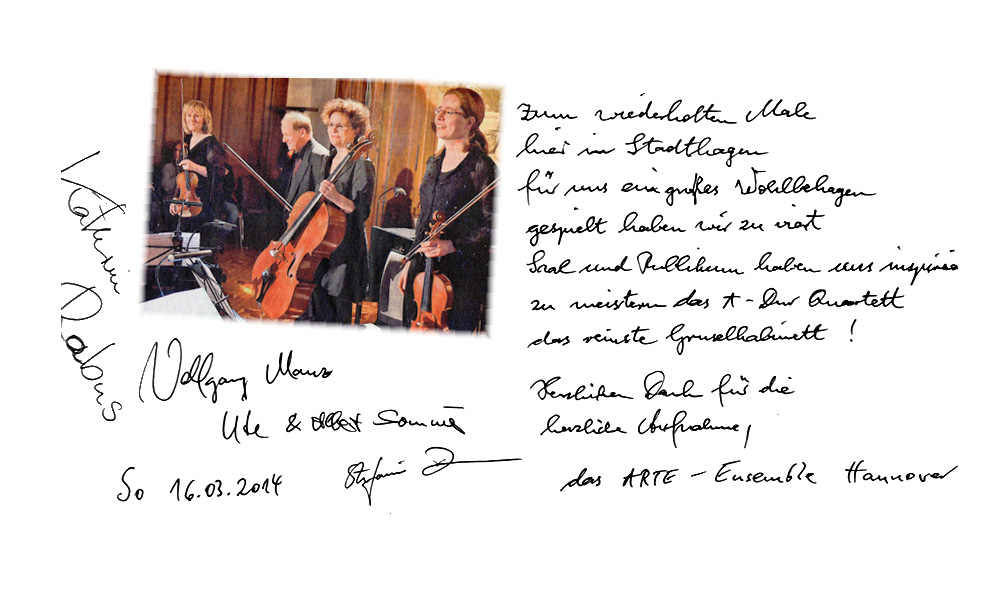 Zum wiederholten Male
hier in Stadthagen
für uns ein großes Wohlbehagen
gespielt haben wir zu viert
Saal und Publikum haben uns inspiriert
zu meistern das A-Dur Quartett
das reinste Gruselkabinett!
Herzlichen Dank für die
herzliche Aufnahme,
das ARTE-Ensemble Hannover
Kathrin Rabus
Wolfgang
Ute & Sommer
So 16.03.2014